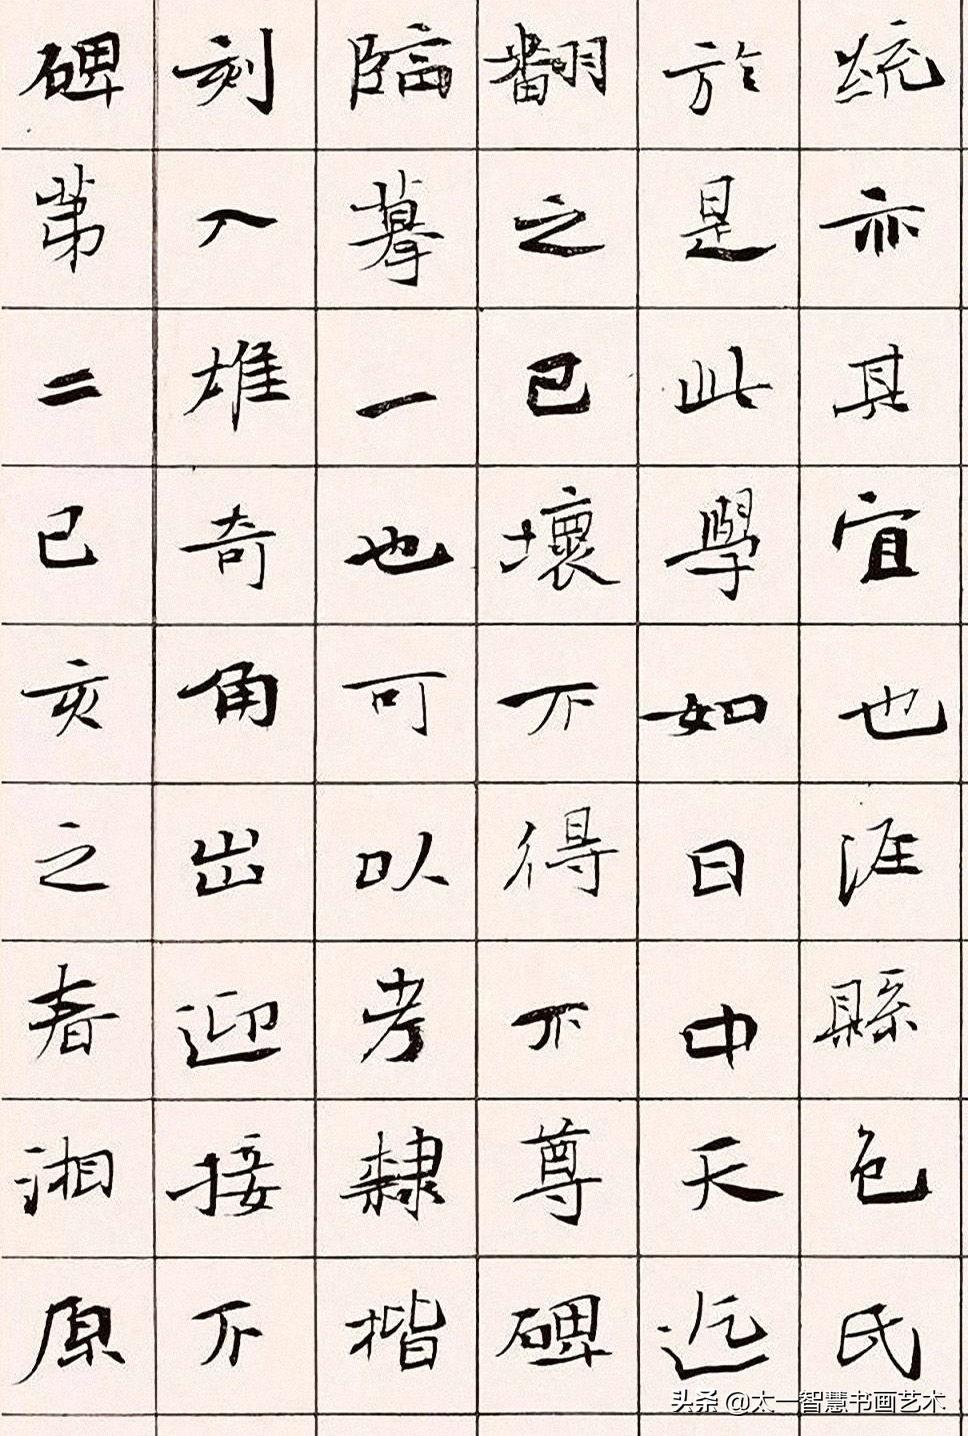 統亦其宜也涇縣包氏
於是此學如日中天迄
翻之已壞不得不尊碑
臨摹一也可以考隸楷
刻入雄奇角出迎接不
碑第二己亥之春湘原
头条 @太一智慧书画艺术